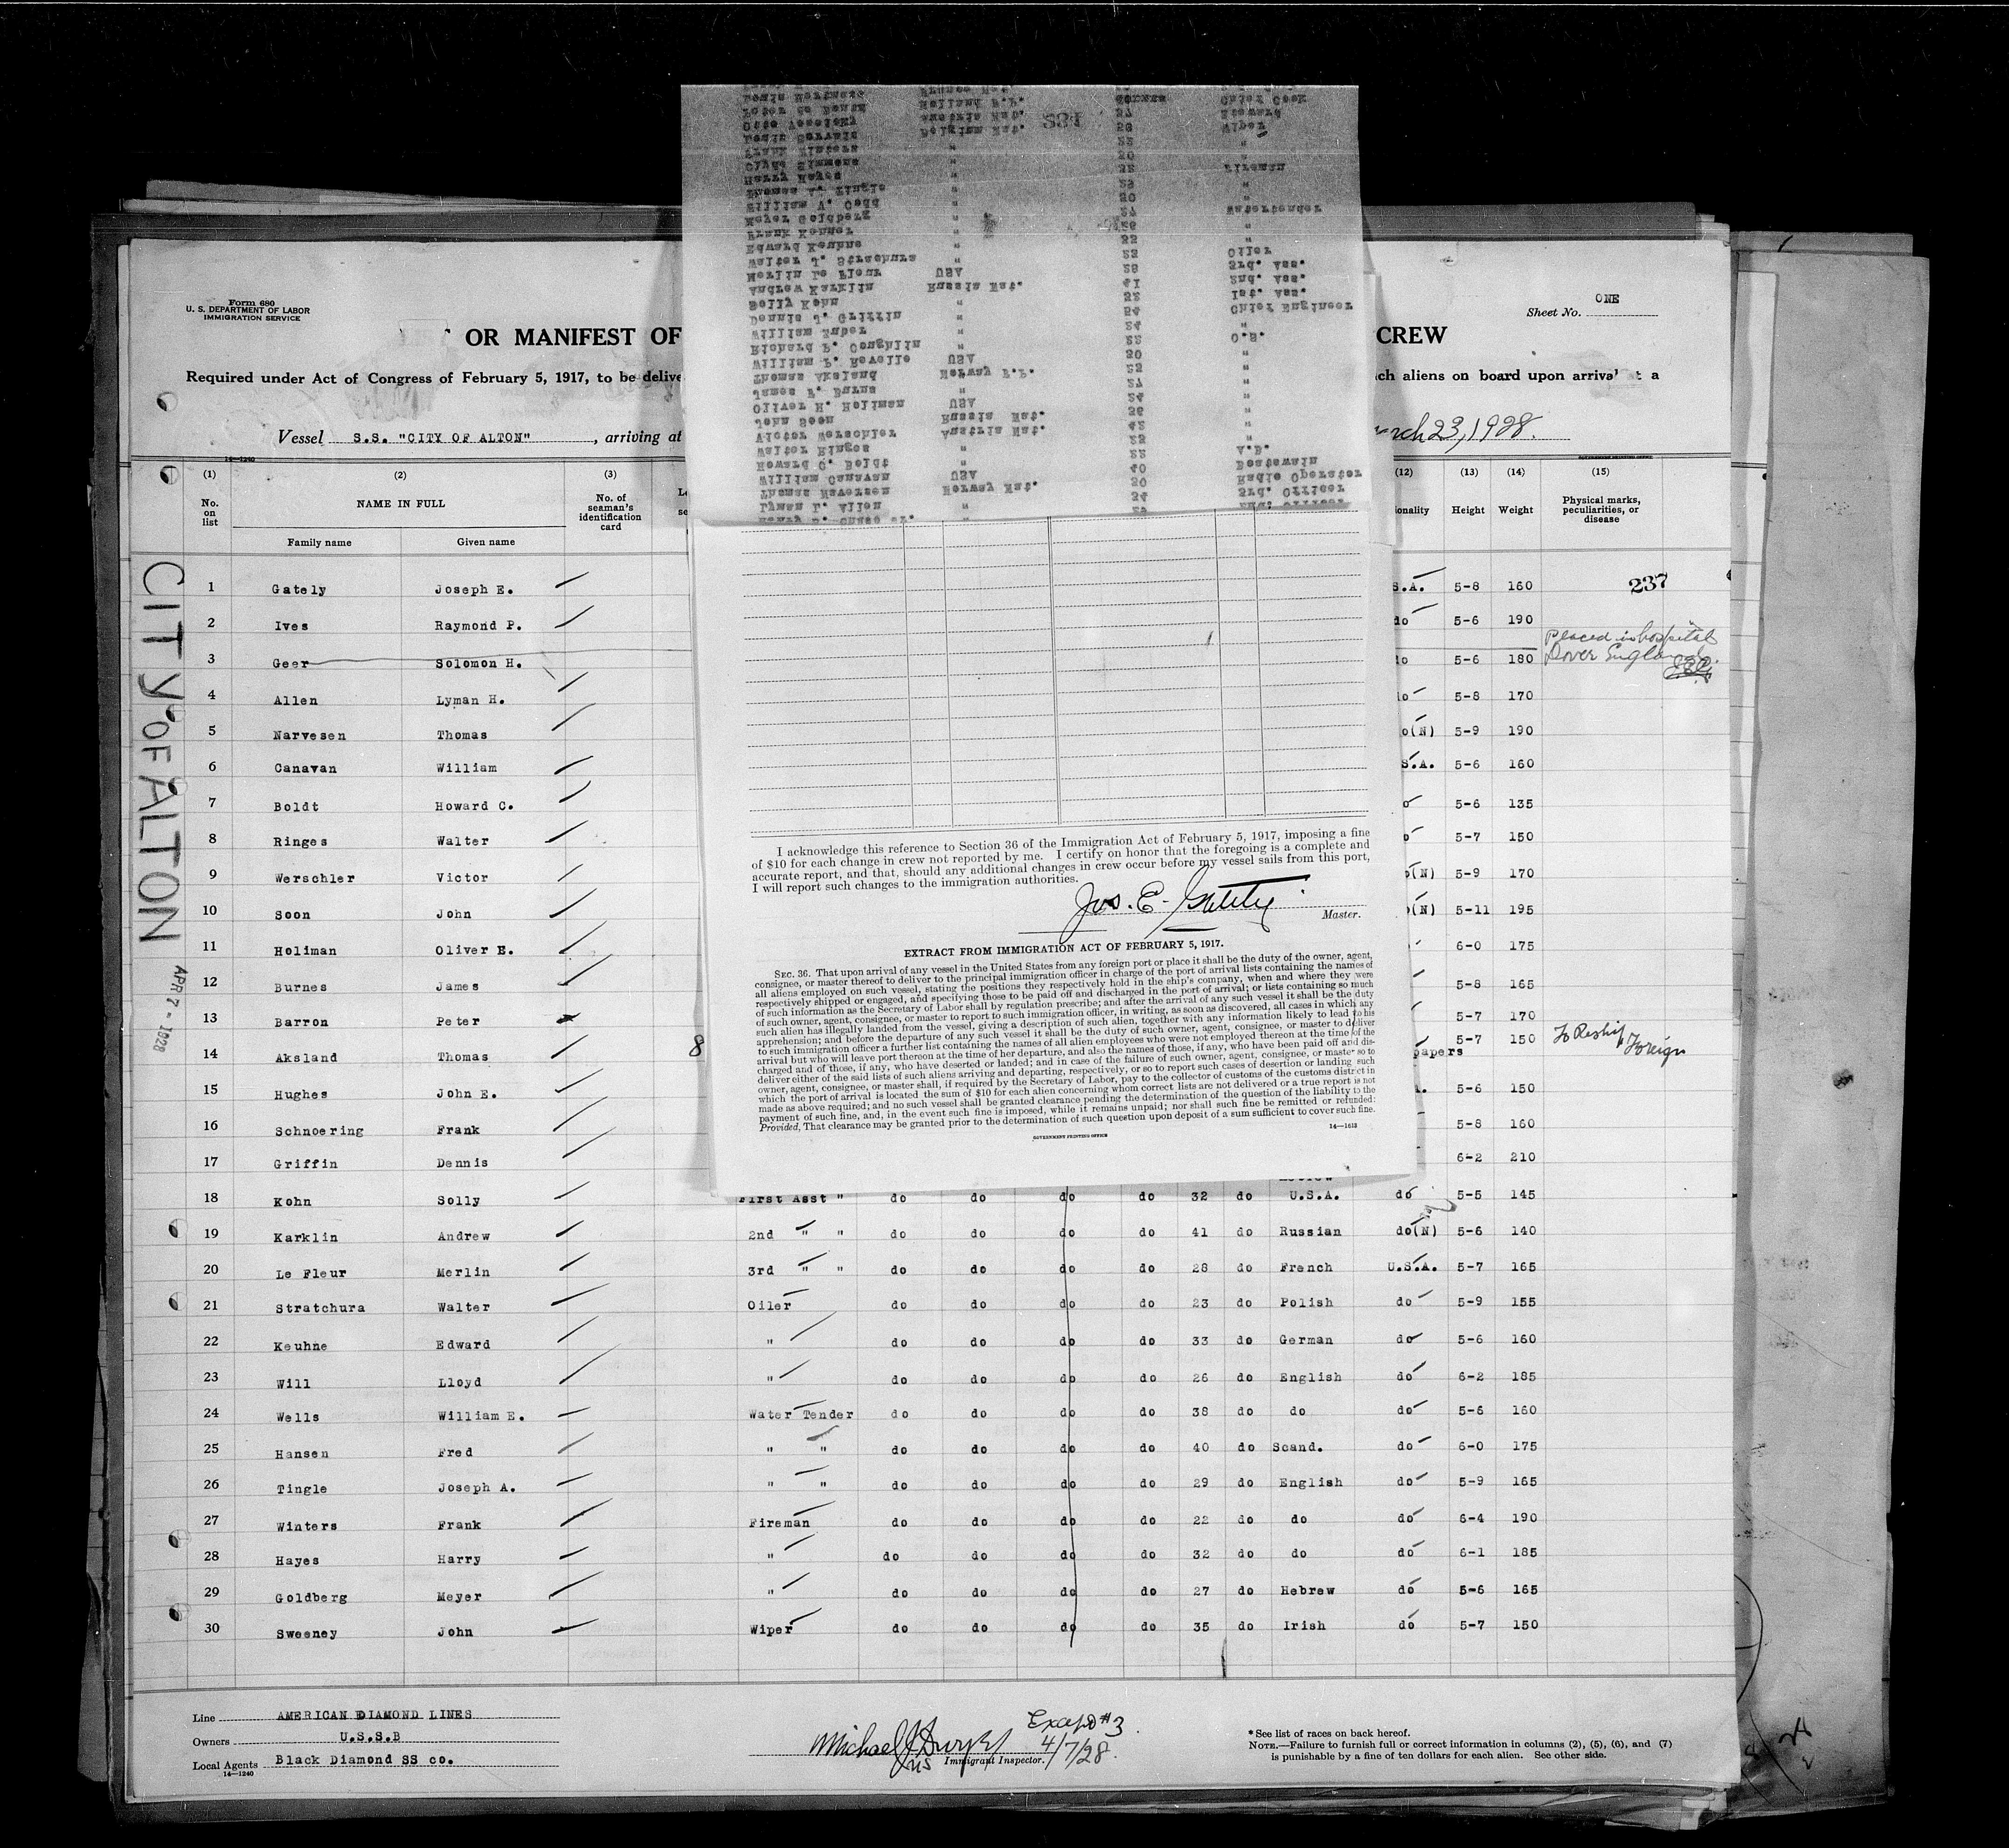 Form 680
U. S. DEPARTMENT OF LABOR
IMMIGRATION SERVICE
Sheet No. ONE
OR MANIFEST OF
CREW
Required under Act of Congress of February 5, 1917, to be delive
ch aliens on board upon arrival at a
Vessel S.S. "CITY OF ALTON" , arriving at
rch 23, 1928.
14—1240
(1) (2) (3) (12) (13) (14) (15)
No. on list NAME IN FULL No. of seaman's identification card onality Height Weight Physical marks, peculiarities, or disease
Family name Given name
CITY OF ALTON
APR 7 - 1928
1 Gately Joseph E. S.A. 5-8 160 237
2 Ives Raymond P. do 5-6 190
3 Geer Solomon H. do 5-6 180 Placed in hospital Dover England
4 Allen Lyman H. do 5-8 170
5 Narvesen Thomas o(N) 5-9 190
6 Canavan William S.A. 5-6 160
7 Boldt Howard C. o 5-6 135
8 Ringes Walter o 5-7 150
9 Werschler Victor o(N) 5-9 170
10 Soon John o(N) 5-11 195
11 Holiman Oliver E. 6-0 175
12 Burnes James 5-8 165
13 Barron Peter 5-7 170
14 Aksland Thomas 8 papers 5-7 150 To Reship Foreign
15 Hughes John E. 5-6 150
16 Schnoering Frank 5-8 160
17 Griffin Dennis 6-2 210
18 Kohn Solly First Asst " do do do do 32 do U.S.A. do 5-5 145
19 Karklin Andrew 2nd " " do do do do 41 do Russian do(N) 5-6 140
20 Le Fleur Merlin 3rd " " do do do do 28 do French U.S.A. 5-7 165
21 Stratchura Walter Oiler do do do do 23 do Polish do 5-9 155
22 Keuhne Edward " do do do do 33 do German do 5-6 160
23 Will Lloyd " do do do do 26 do English do 6-2 185
24 Wells William E. Water Tender do do do do 38 do do do 5-6 160
25 Hansen Fred " " do do do do 40 do Scand. do 6-0 175
26 Tingle Joseph A. " " do do do do 29 do English do 5-9 165
27 Winters Frank Fireman do do do do 22 do do do 6-4 190
28 Hayes Harry " do do do do 32 do do do 6-1 185
29 Goldberg Meyer " do do do do 27 do Hebrew do 5-6 165
30 Sweeney John Wiper do do do do 35 do Irish do 5-7 150
Line AMERICAN DIAMOND LINES
Owners U.S.S.B
Local Agents Black Diamond SS co.
14—1240
Except #3
4/7/28.
Immigrant Inspector.
*See list of races on back hereof.
NOTE.—Failure to furnish full or correct information in columns (2), (5), (6), and (7)
is punishable by a fine of ten dollars for each alien. See other side.
Lyman L. Allen " 34 3rd. Officer
Thomas Naversen Norway Nat. 30 Radio Operator
William Canavan USA 40 Boatswain
Howard C. Boldt " 22 A.B.
Walter Ringes " 23
Victor Werschler Austria Nat. 42 "
John Soon Russia Nat. 36 "
Oliver H. Holiman USA 24 "
James F. Burns " 27 "
Thomas Aksland Norway F.P. 23 "
William P. Rovelle USA 30 "
Richard P. Coughlin " 22 O.S.
William Tuber " 24 "
Dennis J. Griffin " 54 Chief Engineer
Solly Kohn " 32 1st. Ass.
Andrew Karklin Russia Nat. 41 2nd. Ass.
Merlin Le Fleur USA 28 3rd. Ass.
Walter J. Strachura " 23 Oiler
Edward Keuhne " 33 "
Frank Konner " 26 "
Meyer Goldberg " 27 Watertender
William A. Codd " 30 "
Thomas A. Tingle " 29 "
Harry Hayes " 32 Fireman
Clyde Simmons " 30
Frank Winters " 22 "
Louis Servais Belgium Nat. 38 Wiper
Otto Vesolsky Austria Nat. 37 Steward
Holland F.P. Chief Cook
I acknowledge this reference to Section 36 of the Immigration Act of February 5, 1917, imposing a fine
of $10 for each change in crew not reported by me. I certify on honor that the foregoing is a complete and
accurate report, and that, should any additional changes in crew occur before my vessel sails from this port,
I will report such changes to the immigration authorities.
Jos. E. Gately
Master.
EXTRACT FROM IMMIGRATION ACT OF FEBRUARY 5, 1917.
SEC. 36. That upon arrival of any vessel in the United States from any foreign port or place it shall be the duty of the owner, agent,
consignee, or master thereof to deliver to the principal immigration officer in charge of the port of arrival lists containing the names of
all aliens employed on such vessel, stating the positions they respectively hold in the ship's company, when and where they were
respectively shipped or engaged, and specifying those to be paid off and discharged in the port of arrival; or lists containing so much
of such information as the Secretary of Labor shall by regulation prescribe; and after the arrival of any such vessel it shall be the duty
of such owner, agent, consignee, or master to report to such immigration officer, in writing, as soon as discovered, all cases in which any
such alien has illegally landed from the vessel, giving a description of such alien, together with any information likely to lead to his
apprehension; and before the departure of any such vessel it shall be the duty of such owner, agent, consignee, or master to deliver
to such immigration officer a further list containing the names of all alien employees who were not employed thereon at the time of the
arrival but who will leave port thereon at the time of her departure, and also the names of those, if any, who have been paid off and dis-
charged and of those, if any, who have deserted or landed; and in case of the failure of such owner, agent, consignee, or master so to
deliver either of the said lists of such aliens arriving and departing, respectively, or so to report such cases of desertion or landing, such
owner, agent, consignee, or master shall, if required by the Secretary of Labor, pay to the collector of customs of the customs district in
which the port of arrival is located the sum of $10 for each alien concerning whom correct lists are not delivered or a true report is not
made as above required; and no such vessel shall be granted clearance pending the determination of the question of the liability to the
payment of such fine, and, in the event such fine is imposed, while it remains unpaid; nor shall such fine be remitted or refunded:
Provided, That clearance may be granted prior to the determination of such question upon deposit of a sum sufficient to cover such fine.
GOVERNMENT PRINTING OFFICE
14—1613